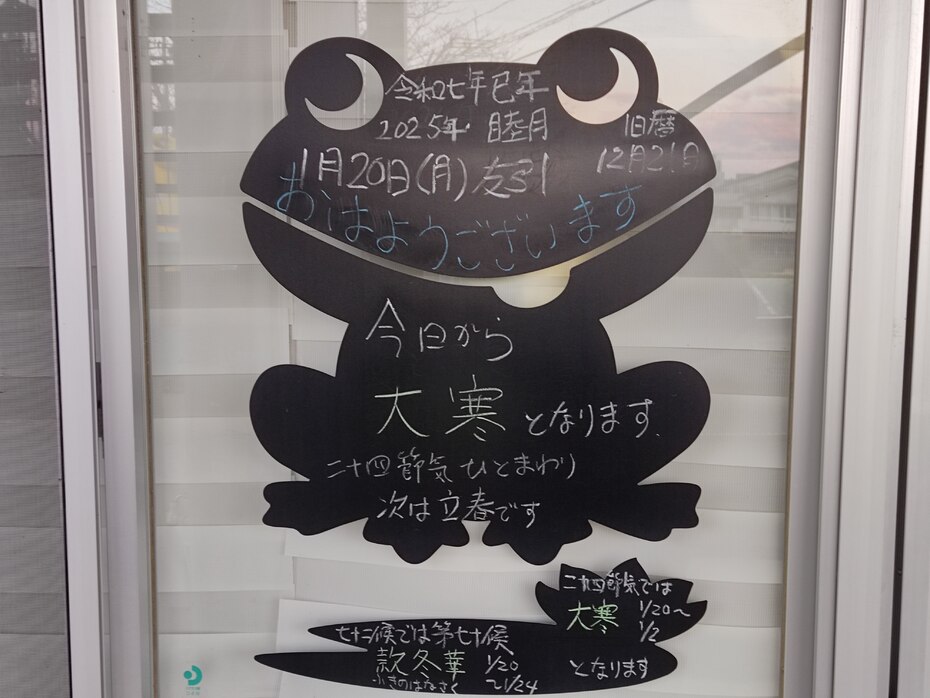 令和七年巳年
2025年 睦月
旧暦
12月21日
1月20日(月)友引
おはようございます
今日から
大寒となります
二十四節気ひとまわり
次は立春です
二十四節気では
大寒 1/20～
1/2
七十二候では第七十候
款冬華 1/20
ふきのはなさく ～1/24
となります